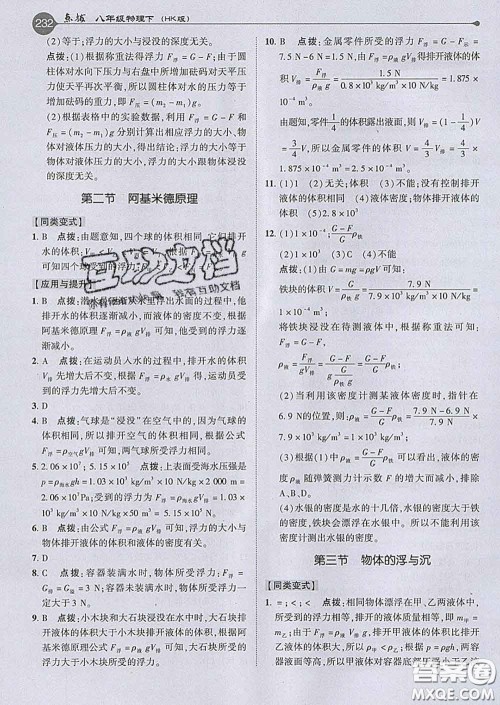 232 点拨 八年级物理下 (HK版)
(2)等于;浮力的大小与浸没的深度无关。
点拨:(1)根据称重法得浮力 F浮=G-F;由于圆
柱体对水向下压力与右盘中所增加砝码对天平压
力使天平再次平衡,所以圆柱体对水的压力等于
增加砝码的重力,即 F压=(m₂-m₁)g。
(2)根据表格中的实验数据,利用 F浮=G-F 和
F压=(m₂-m₁)g 分别计算出相应浮力大小、压
力大小,并进行比较,得出结论:浮力与压力大小
相等,与物体浸没在液体中的深度无关,浮力的大
小与物体所受压力相等,浮力大小跟物体浸没的
深度无关。
第二节 阿基米德原理
【同类变式】
1. B 点拨:由题意知,四个球的体积相同,它们排开
水的体积:V
可知四个球受到的浮力:F
【应用与提升】
1. B
排开水的体积逐渐减小,而水的密度不变,根据阿
基米德原理 F浮=ρ液gV排 可知,他受到的浮力逐
渐减小。
2. A 点拨:在运动员入水的过程中,排开水的体积
先增大后不变,根据 F浮=ρ液gV排 可得,运动员受
到的浮力先增大后不变。
3. D
4. B 点拨:气球是“浸没”在空气中的,因气球体积
不变,所以排开空气的体积不变,根据公式
F浮=ρ空气gV排 可知浮力不变。
5. 2.06×10⁷;5.15×10⁵ 点拨:上表面受海水压强是
p=ρ海水gh=1.03×10³ kg/m³×10 N/kg×2 000 m
=2.06×10⁷Pa;受到的浮力 F浮=ρ海水gV排=1.03
×10³ kg/m³×10 N/kg×50 m³=5.15×10⁵ N。
6. B 点拨:由公式 F浮=ρ液gV排 可知,浮力的大小与
物体排开液体的体积和液体的密度有关。
7. D
8. C 点拨:容器装满水时,物体所受浮力:F浮=
G排=G溢=3 N;容器未装满水时,物体所受浮力一
定大于3 N。
9. B 点拨:小木块和大石块浸没在水中时,大石块排
开液体的体积大于小木块排开液体的体积,根据
阿基米德原理 F浮=ρ液gV排 可知,大石块所受
浮力大于小木块所受浮力。
10. B 点拨:金属零件所受的浮力 F浮=G-F=7.5 N
-6 N=1.5 N;由 F浮=ρ液gV排得排开液体的体积
V排=F浮/ρ液g=1.5 N/0.8×10³ kg/m³×10 N/kg=1.875×
10⁻⁴ m³。
由题知,零件的1/4的体积露出液面,则 V排=(1-1/4)V
=3/4V,所以金属零件的体积 V=4/3V排=4/3×1.875
×10⁻⁴ m³=2.5×10⁻⁴ m³。
11. (1)1 (2)无关;体积 (3)不能;没有控制排开
液体的体积相同 (4)液体密度;物体排开液体的
体积 (5)2.8×10³
12. (1)G-F/Gρ铁 (2)6 (3)C (4)不能
点拨:(1)由 G=mg=ρgV 可知,
V=G/ρ铁g=7.9 N/7.9×10³ kg/m³×10 N/kg=1×10⁻⁴ m³;
将铁块浸没在待测液体中,根据称重法可知:
F浮=G-F,
ρ液=F浮/gV排=G-F/gV排=G-F/gV铁=G-F/Gρ铁。
(2)当利用该密度计测某液体密度时,指针在
6.9 N的位置,则:ρ液=G-F/Gρ铁=7.9 N-6.9 N/7.9 N×
7.9×10³ kg/m³=1×10³ kg/m³。
(3)根据(1)中 ρ液=G-F/Gρ铁 可以看出,液体密
度随弹簧测力计示数 F 的增大而减小,故排除
A、B、D。
(4)水银的密度是水的十几倍,水银的密度大于
铁块,铁块会漂浮在水银中。所以不能用该密度
计测量水银的密度。
第三节 物体的浮与沉
【同类变式】
1. =;<;< 点拨:相同物体漂浮在甲、乙两液体中,
则物体在两液体中受到的浮力相等,即 m甲=
m乙;由图可知,在甲液体中物体排开液体的体积比排开
乙液体的体积大,所以 ρ甲<ρ乙;根据 p=ρgh,两容
器液面等高,所以甲液体对容器底部压强小于乙